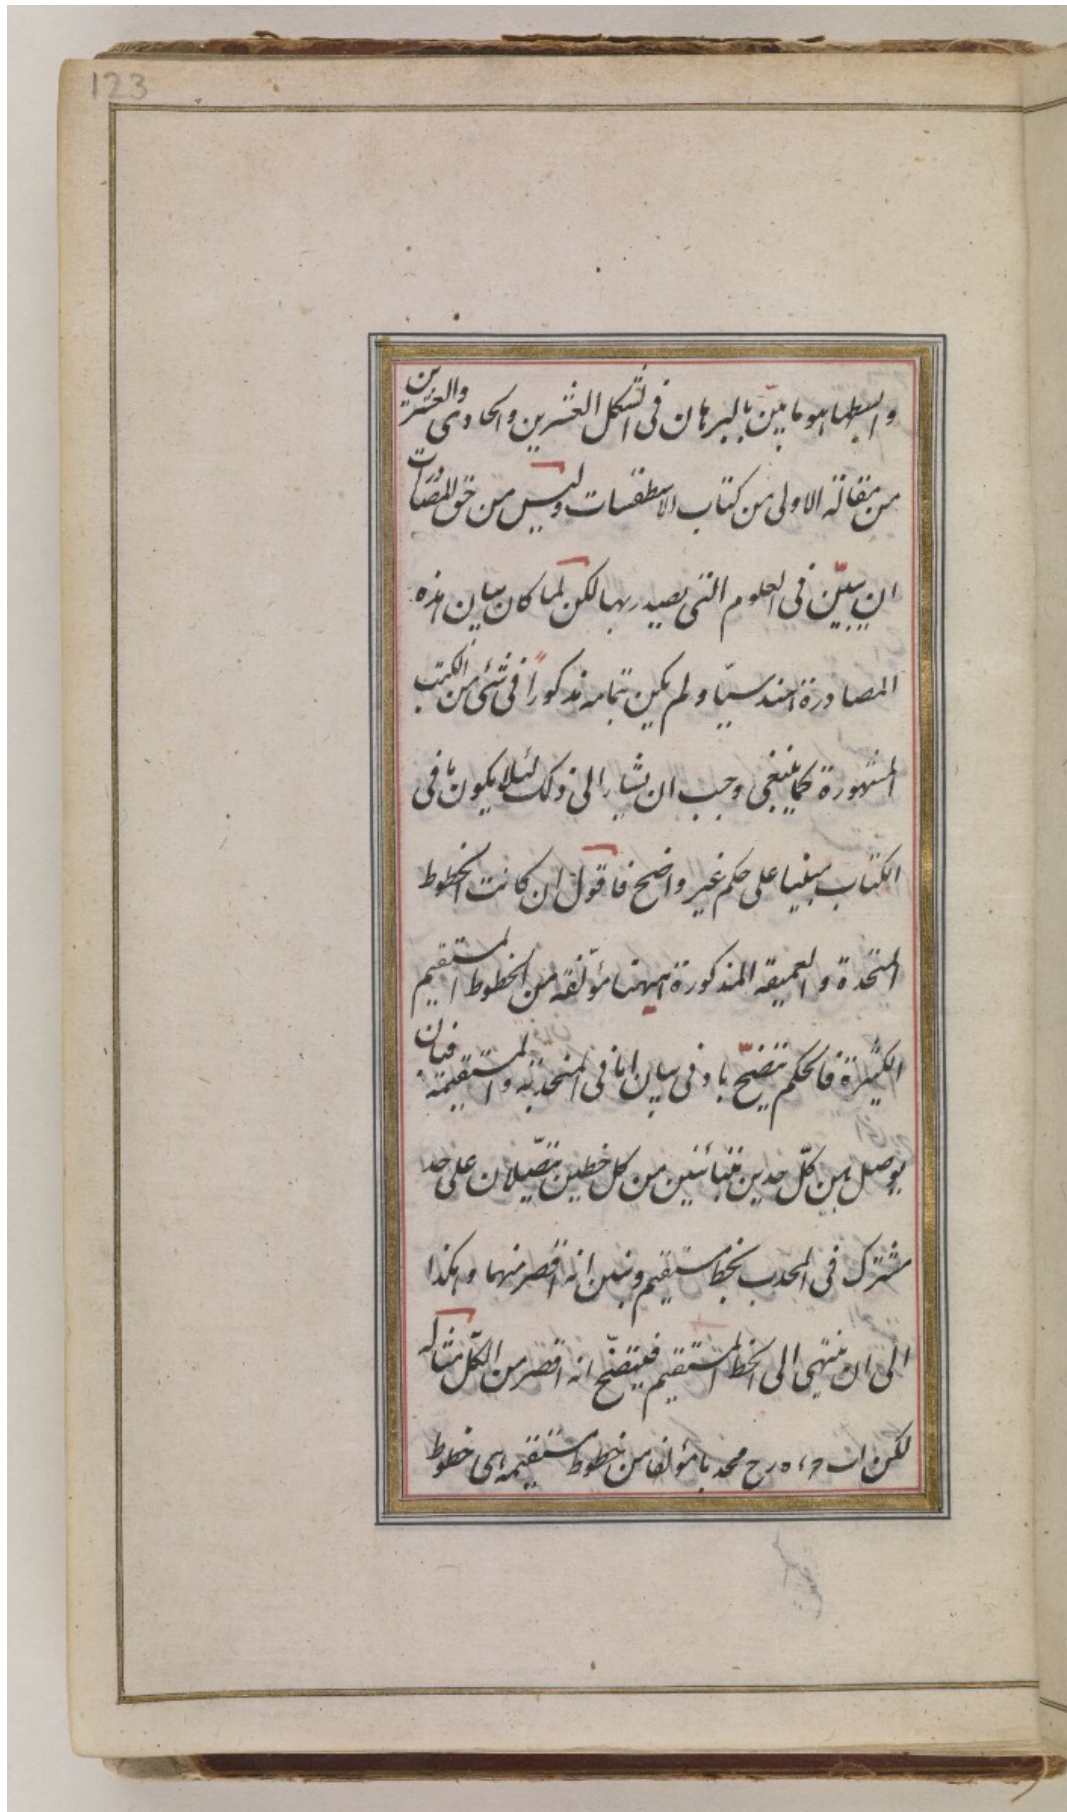 123
وابسطها هو ما بيّن بالبرهان فى الشكل العشرين والحادى والعشرين
من مقالة الاولى من كتاب الاسطقسات وليس من حق المصادرات
ان يبيّن فى العلوم التى يصدر بها لكن لما كان بيان هذه
المصادرة هندسيّا ولم يكن بتمامه مذكوراً فى شئ من الكتب
المشهورة كما ينبغى وجب ان يشار الى ذلك لئلا يكون ما فى
الكتاب مبنيا على حكم غير واضح فاقول ان كانت الخطوط
المتحدة والعميقه المذكورة ههنا مؤلّفة من الخطوط المستقيم
الكثيرة فالحكم يتضّح باد فى بيان اما فى المنحدبه والمستقيمة فبان
يوصل بين كلّ حدين متبائنين من كل خطين يتصّلان على حد
مشترك فى المحدب بخط مستقيم ونبين انه اقصر منهما وهكذا
الى ان ينتهى الى الخط المستقيم فيتضّح انه اقصر من الكلّ مثاله
لكن ا ب ح محدبا مؤلفا من خطوط مستقيمه هى خطوط